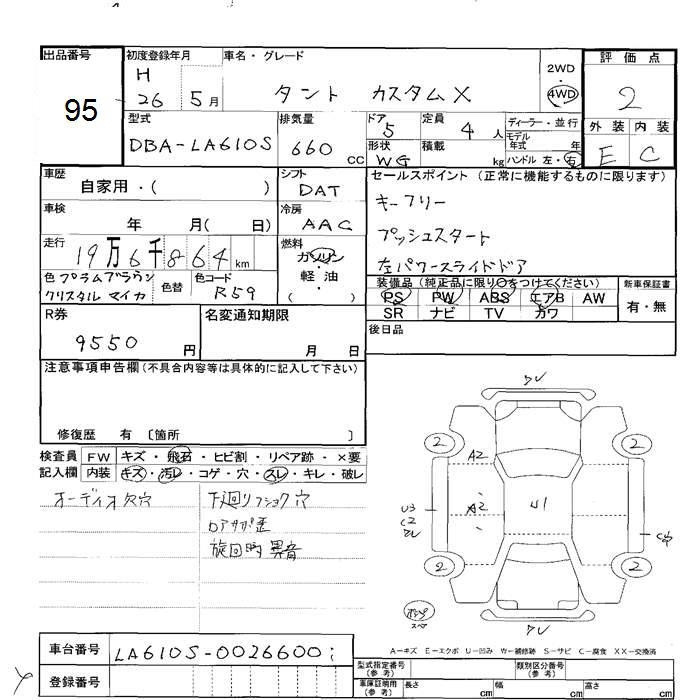 出品番号
95
初度登録年月
H
26 5月
車名・グレード
タント カスタムX
2WD
4WD
評価点
2
外装 内装
E C
型式
DBA-LA610S
排気量
660 CC
ドア
5
定員
4人
ディーラー・並行
モデル
年式 年
ハンドル 左・右
形状
WG
積載
kg
車歴
自家用・( )
シフト
DAT
車検
年 月( 日)
冷房
AAC
走行
19万6千864km
燃料
ガソリン
・
軽油
( )
色 プラムブラウン
クリスタル マイカ
色替
色コード
R59
セールスポイント (正常に機能するものに限ります)
キーフリー
プッシュスタート
左パワースライドドア
装備品(純正品に限り○をつけてください)
PS PW ABS エアB AW
SR ナビ TV カワ
新車保証書
有・無
R券
9550円
名変通知期限
月 日
後日品
注意事項申告欄(不具合内容等は具体的に記入して下さい)
修復歴 有 〔箇所 〕
検査員
記入欄
FW キズ・飛石・ヒビ割・リペア跡・×要
内装 キズ・汚レ・コゲ・穴・スレ・キレ・破レ
オーディオ欠穴
下廻リ
穴
ロアサポ歪
旋回時 異音
2 2
A2
A2
U1
U3
C2
2 2
スペア
A－キズ E－エクボ U－凹み W－補修跡 S－サビ C－腐食 XX－交換済
車台番号
LA610S-0026600
登録番号
型式指定番号
(参考)
類別区分番号
(参考)
車庫証明用
(参考)
長さ cm
幅 cm
高さ cm